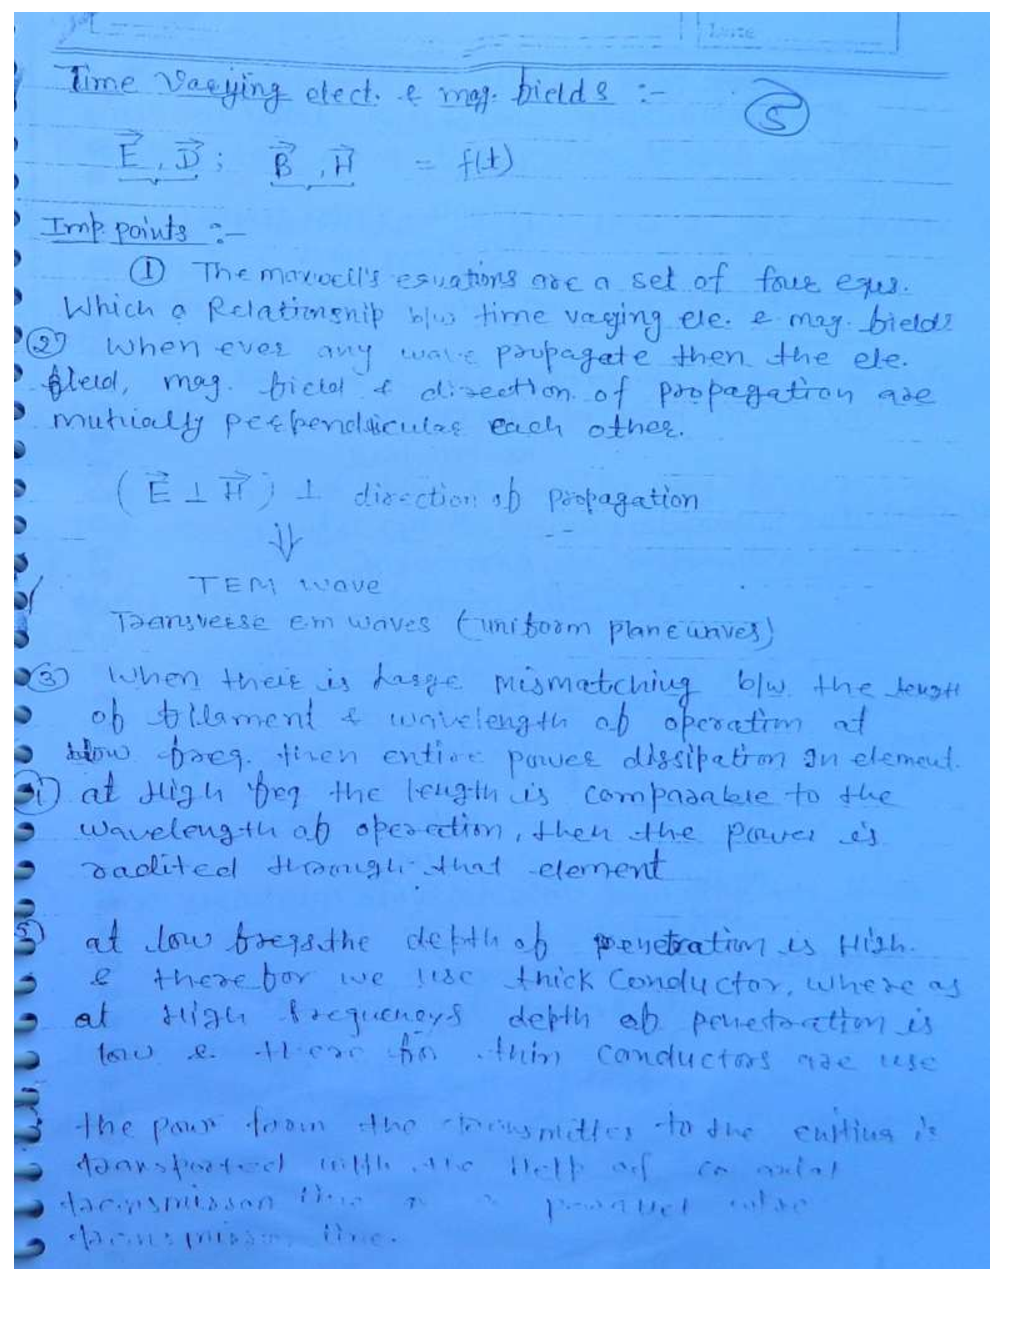 Date
Time Varying elect. & mag. fields :-
5
E, D; B, H = f(t)
Imp. points :-
① The maxwell's equations are a set of four equs.
Which a Relationship b/w time varying ele. & mag. fields
② When ever any wave propagate then the ele.
field, mag. field & direction of propagation are
mutually perpendicular each other.
(E ⊥ H) ⊥ direction of propagation
⇓
TEM wave
Transverse em waves (uniform plane waves)
③ When their is Large mismatching b/w the length
of filament & wavelength of operation at
low freq. then entire power dissipation In element.
at High freq the length is comparable to the
wavelength of operation, then the power is
radited through that element
5) at low freqs. the depth of penetration is High.
& therefor we use thick Conductor, where as
at High frequencys depth of penetration is
low & there for thin conductors are use
the pour from the transmitter to the is
with the Help of co axial
transmisson line
line.